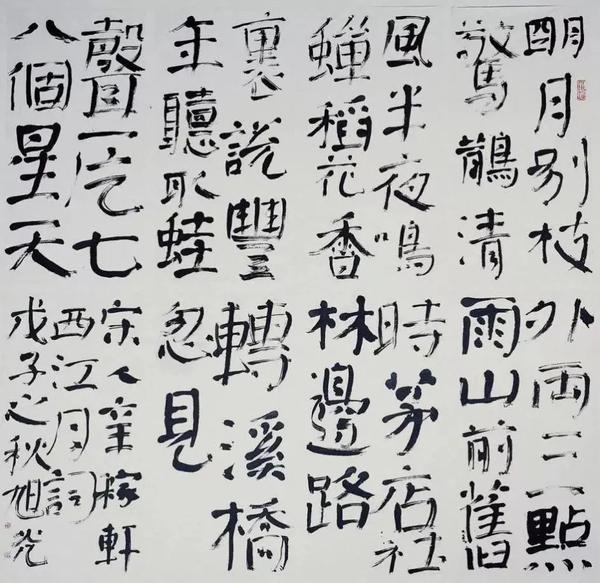 明月别枝
驚鵲清
風半夜鳴
蟬稻花香
裏説豐
年聽取蛙
聲一片七
八個星天
外兩三點
雨山前舊
時茅店社
林邊路
轉溪橋
忽見
宋人辛稼軒
西江月詞
戊子之秋旭光